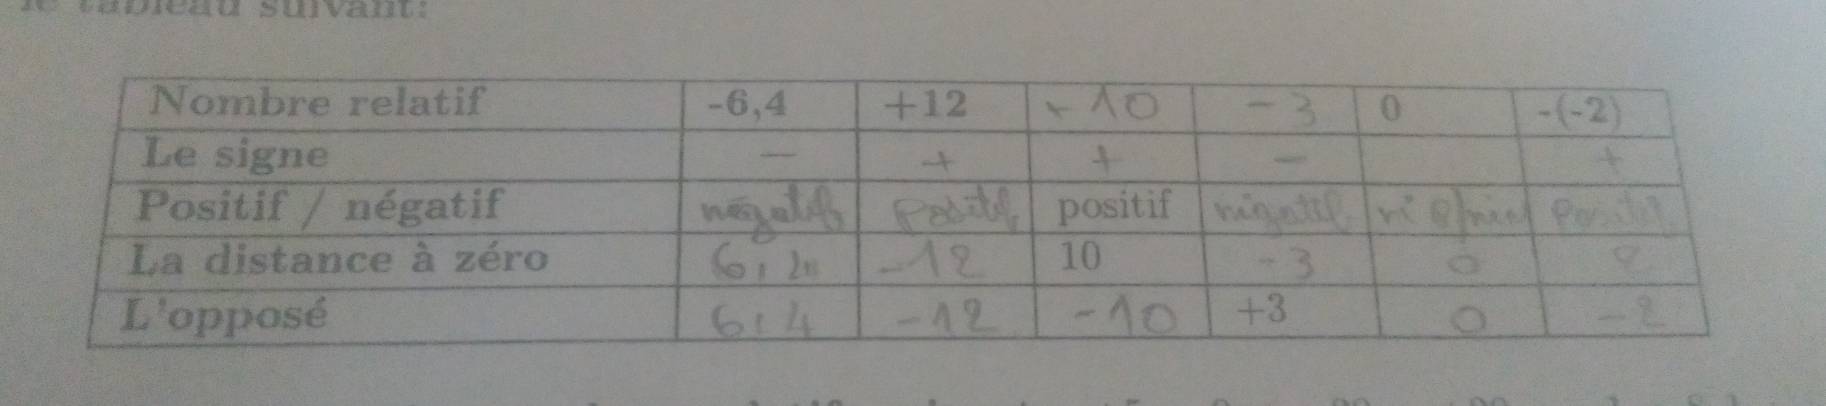 le tableau suivant:
Nombre relatif -6,4 +12 + 10 - 3 0 -(-2)
Le signe - + + - +
Positif / négatif négatif positif positif négatif positif
La distance à zéro 6, -12 10 -3 0 2
L'opposé 6,4 -12 -10 +3 0 -2